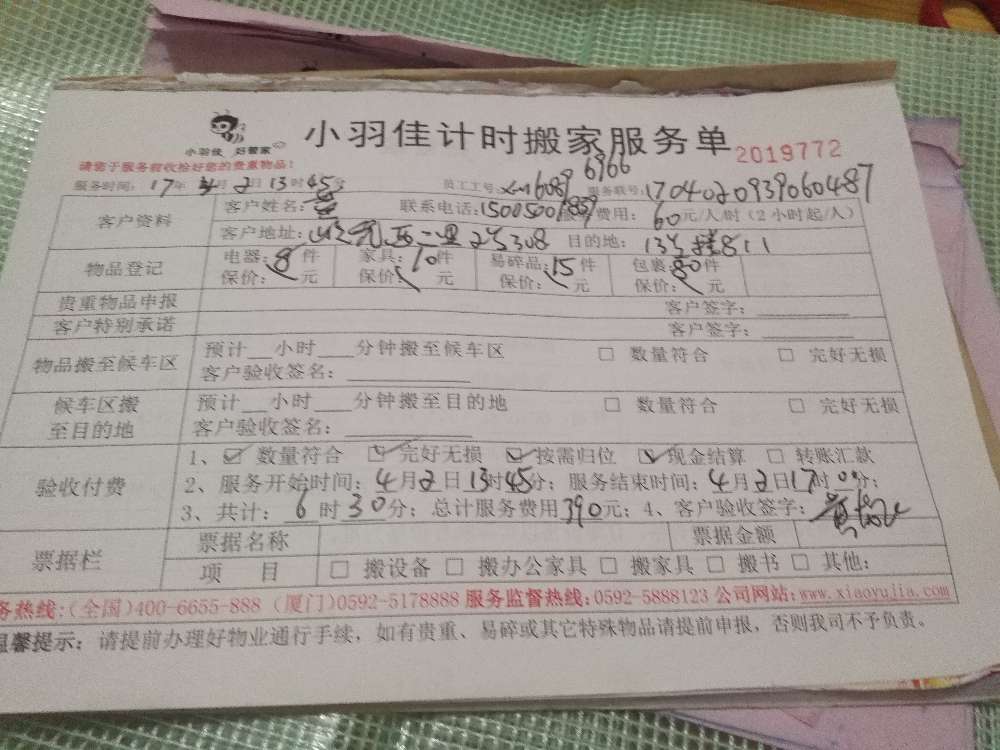 小羽佳 好管家
小羽佳计时搬家服务单 2019772
请您于服务前收拾好您的贵重物品!
6966
服务时间: 17年4月2日13时45分 员工工号: xm6089 服务联号: 1704020939060487
客户资料 客户姓名: 联系电话: 费用: 60元/人/时 (2小时起/人)
客户地址: 西二里2号308 目的地: 13号楼811
物品登记 电器: 8件 家具: 10件 易碎品: 15件 包裹: 80件
保价: 元 保价: 元 保价: 元 保价: 元
贵重物品申报 客户签字:
客户特别承诺 客户签字:
物品搬至候车区 预计__小时___分钟搬至候车区 □ 数量符合 □ 完好无损
客户验收签名:
候车区搬至目的地 预计__小时___分钟搬至目的地 □ 数量符合 □ 完好无损
客户验收签名:
验收付费 1、☑ 数量符合 ☑ 完好无损 ☑ 按需归位 ☑ 现金结算 □ 转账汇款
2、服务开始时间: 4月2日13时45分; 服务结束时间: 4月2日17时0分;
3、共计: 6时30分; 总计服务费用390元; 4、客户验收签字:
票据栏 票据名称 票据金额
项 目 □ 搬设备 □ 搬办公家具 □ 搬家具 □ 搬书 □ 其他:
务热线: (全国)400-6655-888 (厦门)0592-5178888 服务监督热线: 0592-5888123 公司网站: www.xiaoyujia.com
温馨提示: 请提前办理好物业通行手续，如有贵重、易碎或其它特殊物品请提前申报，否则我司不予负责。